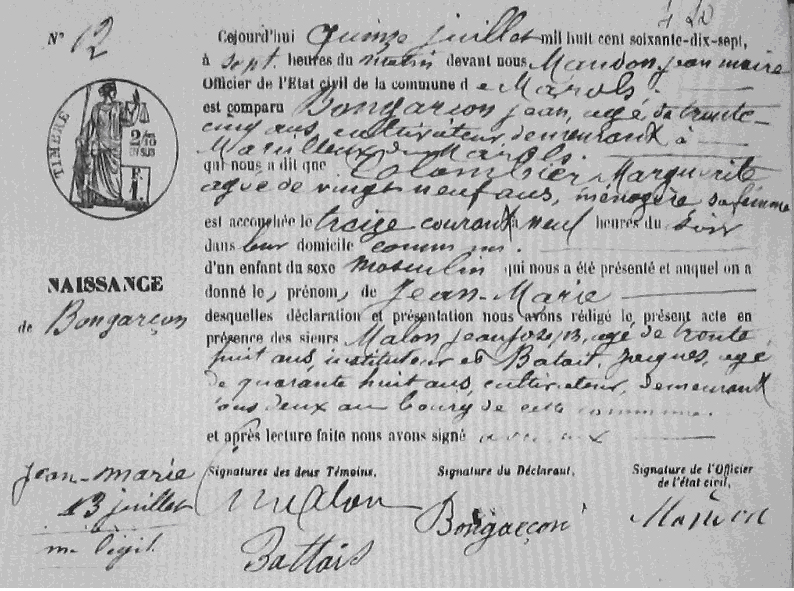 N° 12
Cejourd'hui quinze juillet mil huit cent soixante-dix-sept,
à sept heures du matin devant nous Maudon jean marie
Officier de l'Etat civil de la commune de Marols.
est comparu Bongarçon jean, agé de trente-
cinq ans, cultivateur, demeurant à
de Marols.
qui nous a dit que Colombier Marguerite
agée de vingt neuf ans, ménagère sa femme
est accouchée le treize courant à neuf heures du soir
dans leur domicile commun.
d'un enfant du sexe masculin qui nous a été présenté et auquel on a
donné le, prénom, de Jean-Marie
desquelles déclaration et présentation nous avons rédigé le présent acte en
présence des sieurs Malon jean joseph, agé de trente
huit ans, instituteur et jacques, agé
de quarante huit ans, cultivateur, demeurant
tous deux au bourg de cette commune.
et après lecture faite nous avons signé avec eux
TIMBRE
2/10
EN SUS
NAISSANCE
de Bongarçon
Jean-marie
13 juillet
m. légit.
Signatures des deux Témoins.
Signature du Déclarant.
Signature de l'Officier
de l'état civil.
Malon
Battais
Bongarçon